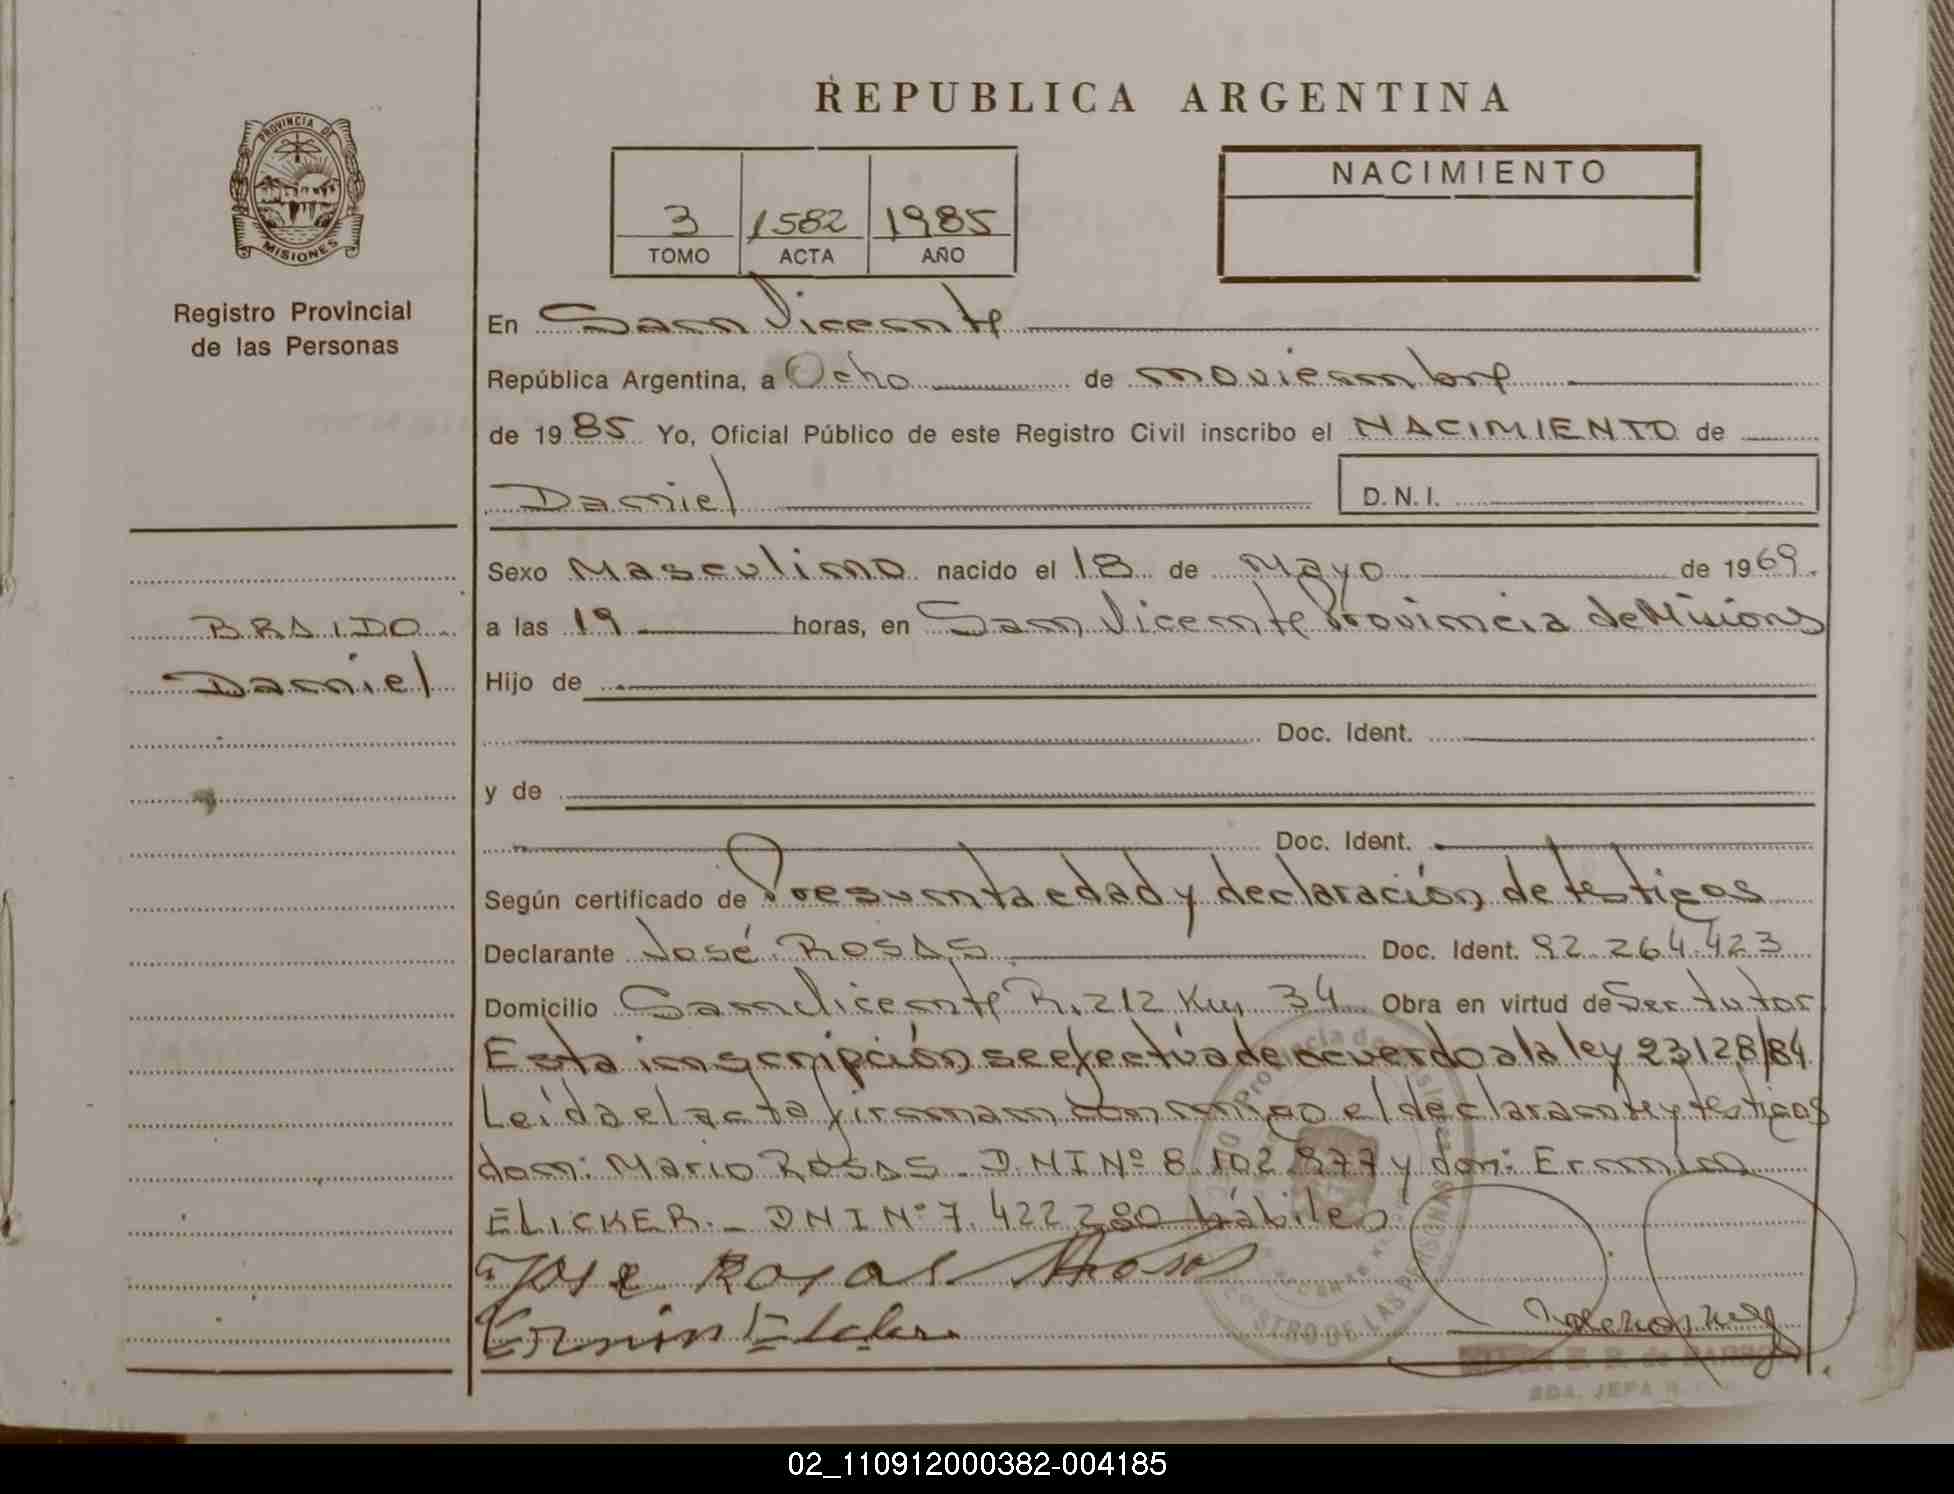 PROVINCIA DE
MISIONES
Registro Provincial
de las Personas
BRAIDO
Daniel
REPUBLICA ARGENTINA
3 1582 1985
TOMO ACTA AÑO
NACIMIENTO
En San Vicente
República Argentina, a Ocho de noviembre
de 1985 Yo, Oficial Público de este Registro Civil inscribo el NACIMIENTO de
Daniel D.N.I.
Sexo Masculino nacido el 18 de Mayo de 1969.
a las 19 horas, en San Vicente Provincia de Misiones
Hijo de
Doc. Ident.
y de
Doc. Ident.
Según certificado de Presunta edad y declaración de testigos
Declarante José ROSAS Doc. Ident. 92.264.423
Domicilio San Vicente R. 212 Km 34 Obra en virtud de Ser tutor
Esta inscripción se efectúa de acuerdo a la ley 23128/84
Leída el acta firman conmigo el declarante y testigos
don: Mario ROSAS. DNI Nº 8.102.977 y don: Ermin
ELICKER. _ DNI Nº 7.422280 hábiles
Jose Rosas
02_110912000382-004185